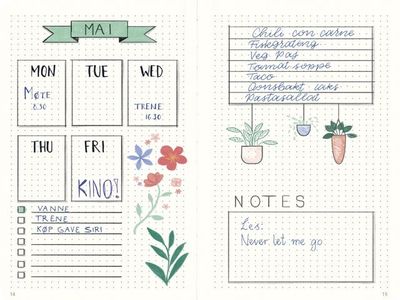 MAI
MON
TUE
WED
Møte
8.30
TRENE
16.30
THU
FRI
KINO!
VANNE
TRENE
KØP GAVE SIRI
14
Chili con carne
Fiskegrateng
Veg
Tomat soppe
Taco
laks
Pastasallat
NOTES
Les:
Never let me go
15